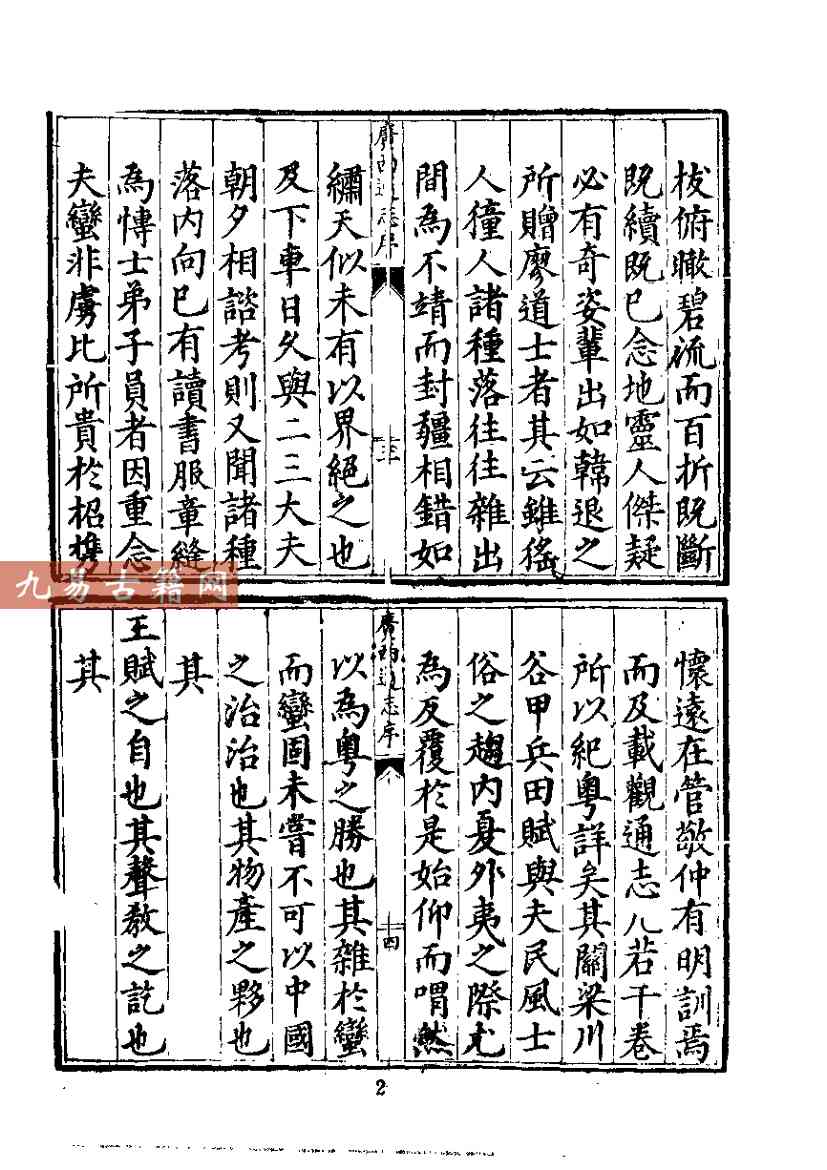 拔俯瞰碧流而百折既斷
既續既已念地靈人傑疑
必有奇姿輩出如韓退之
所贈廖道士者其云雖徭
人獞人諸種落往往雜出
間為不靖而封疆相錯如
廣西通志序
三
繡天似未有以界絕之也
及下車日久與二三大夫
朝夕相諮考則又聞諸種
落内向已有讀書服章縫
為愽士弟子員者因重念
夫蠻非虜比所貴於招携
九易古籍网
懷遠在管敬仲有明訓焉
而及載觀通志凡若干卷
所以紀粤詳矣其關梁川
谷甲兵田賦與夫民風士
俗之趨内夏外夷之際尤
為反覆於是始仰而喟然
廣西通志序
四
以為粤之勝也其雜於蠻
而蠻固未嘗不可以中國
之治治也其物產之夥也
其
王賦之自也其聲教之訖也
其
2